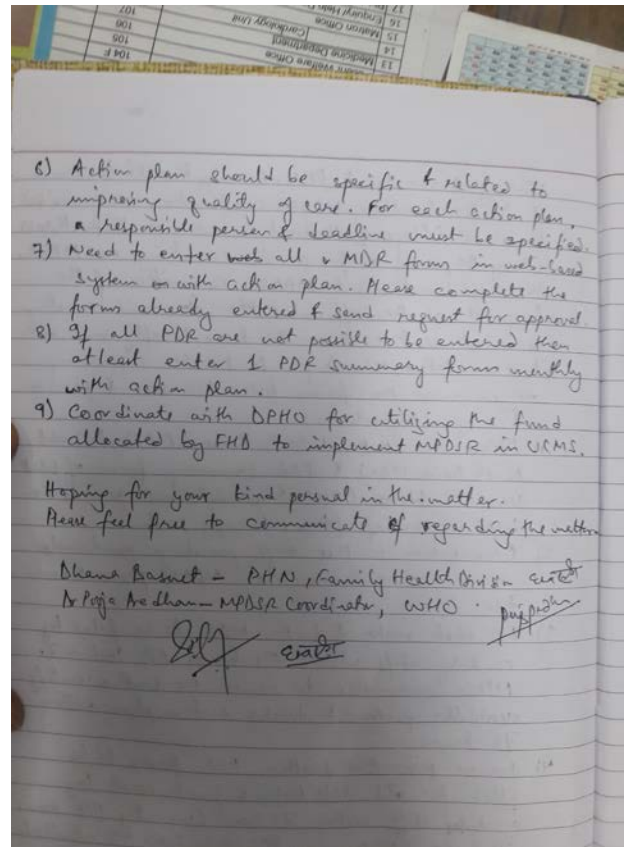 107
106
105
104 F
17 Enquiry/Help
16 Matron Office
15 Cardiology Unit
14 Medicine Department
13 Welfare Office
6) Action plan should be specific & related to
improving quality of care. For each action plan,
a responsible person & deadline must be specified.
7) Need to enter web all MDR forms in web-based
system with action plan. Please complete the
forms already entered & send request for approval.
8) If all PDR are not possible to be entered then
atleast enter 1 PDR summary form monthly
with action plan.
9) Coordinate with DPHO for utilizing the fund
allocated by FHD to implement MPDSR in UCMS.
Hoping for your kind perusal in the matter.
Please feel free to communicate regarding the matter.
Dhana Basnet – PHN, Family Health Division
Dr Pooja Pradhan – MPDSR Coordinator, WHO